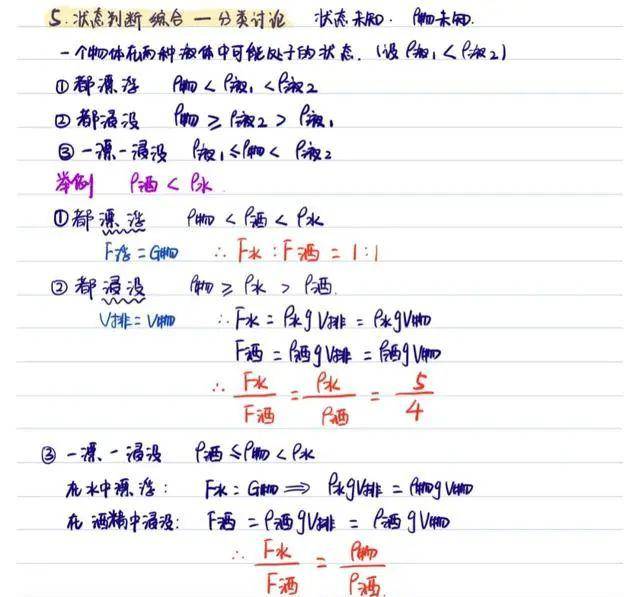 5. 状态判断综合 — 分类讨论 状态未知. ρ物未知.
一个物体在两种液体中可能处于的状态. (设 ρ液₁ < ρ液₂)
① 都漂浮 ρ物 < ρ液₁ < ρ液₂
② 都浸没 ρ物 ≥ ρ液₂ > ρ液₁
③ 一漂一浸没 ρ液₁ ≤ ρ物 < ρ液₂
举例 ρ酒 < ρ水.
① 都漂浮 ρ物 < ρ酒 < ρ水
F浮 = G物 ∴ F水 : F酒 = 1 : 1
② 都浸没 ρ物 ≥ ρ水 > ρ酒.
V排 = V物 ∴ F水 = ρ水gV排 = ρ水gV物
F酒 = ρ酒gV排 = ρ酒gV物
∴ F水/F酒 = ρ水/ρ酒 = 5/4
③ 一漂、一浸没 ρ酒 ≤ ρ物 < ρ水
在水中漂浮: F水 = G物 ⟹ ρ水gV排 = ρ物gV物
在酒精中浸没: F酒 = ρ酒gV排 = ρ酒gV物
∴ F水/F酒 = ρ物/ρ酒.